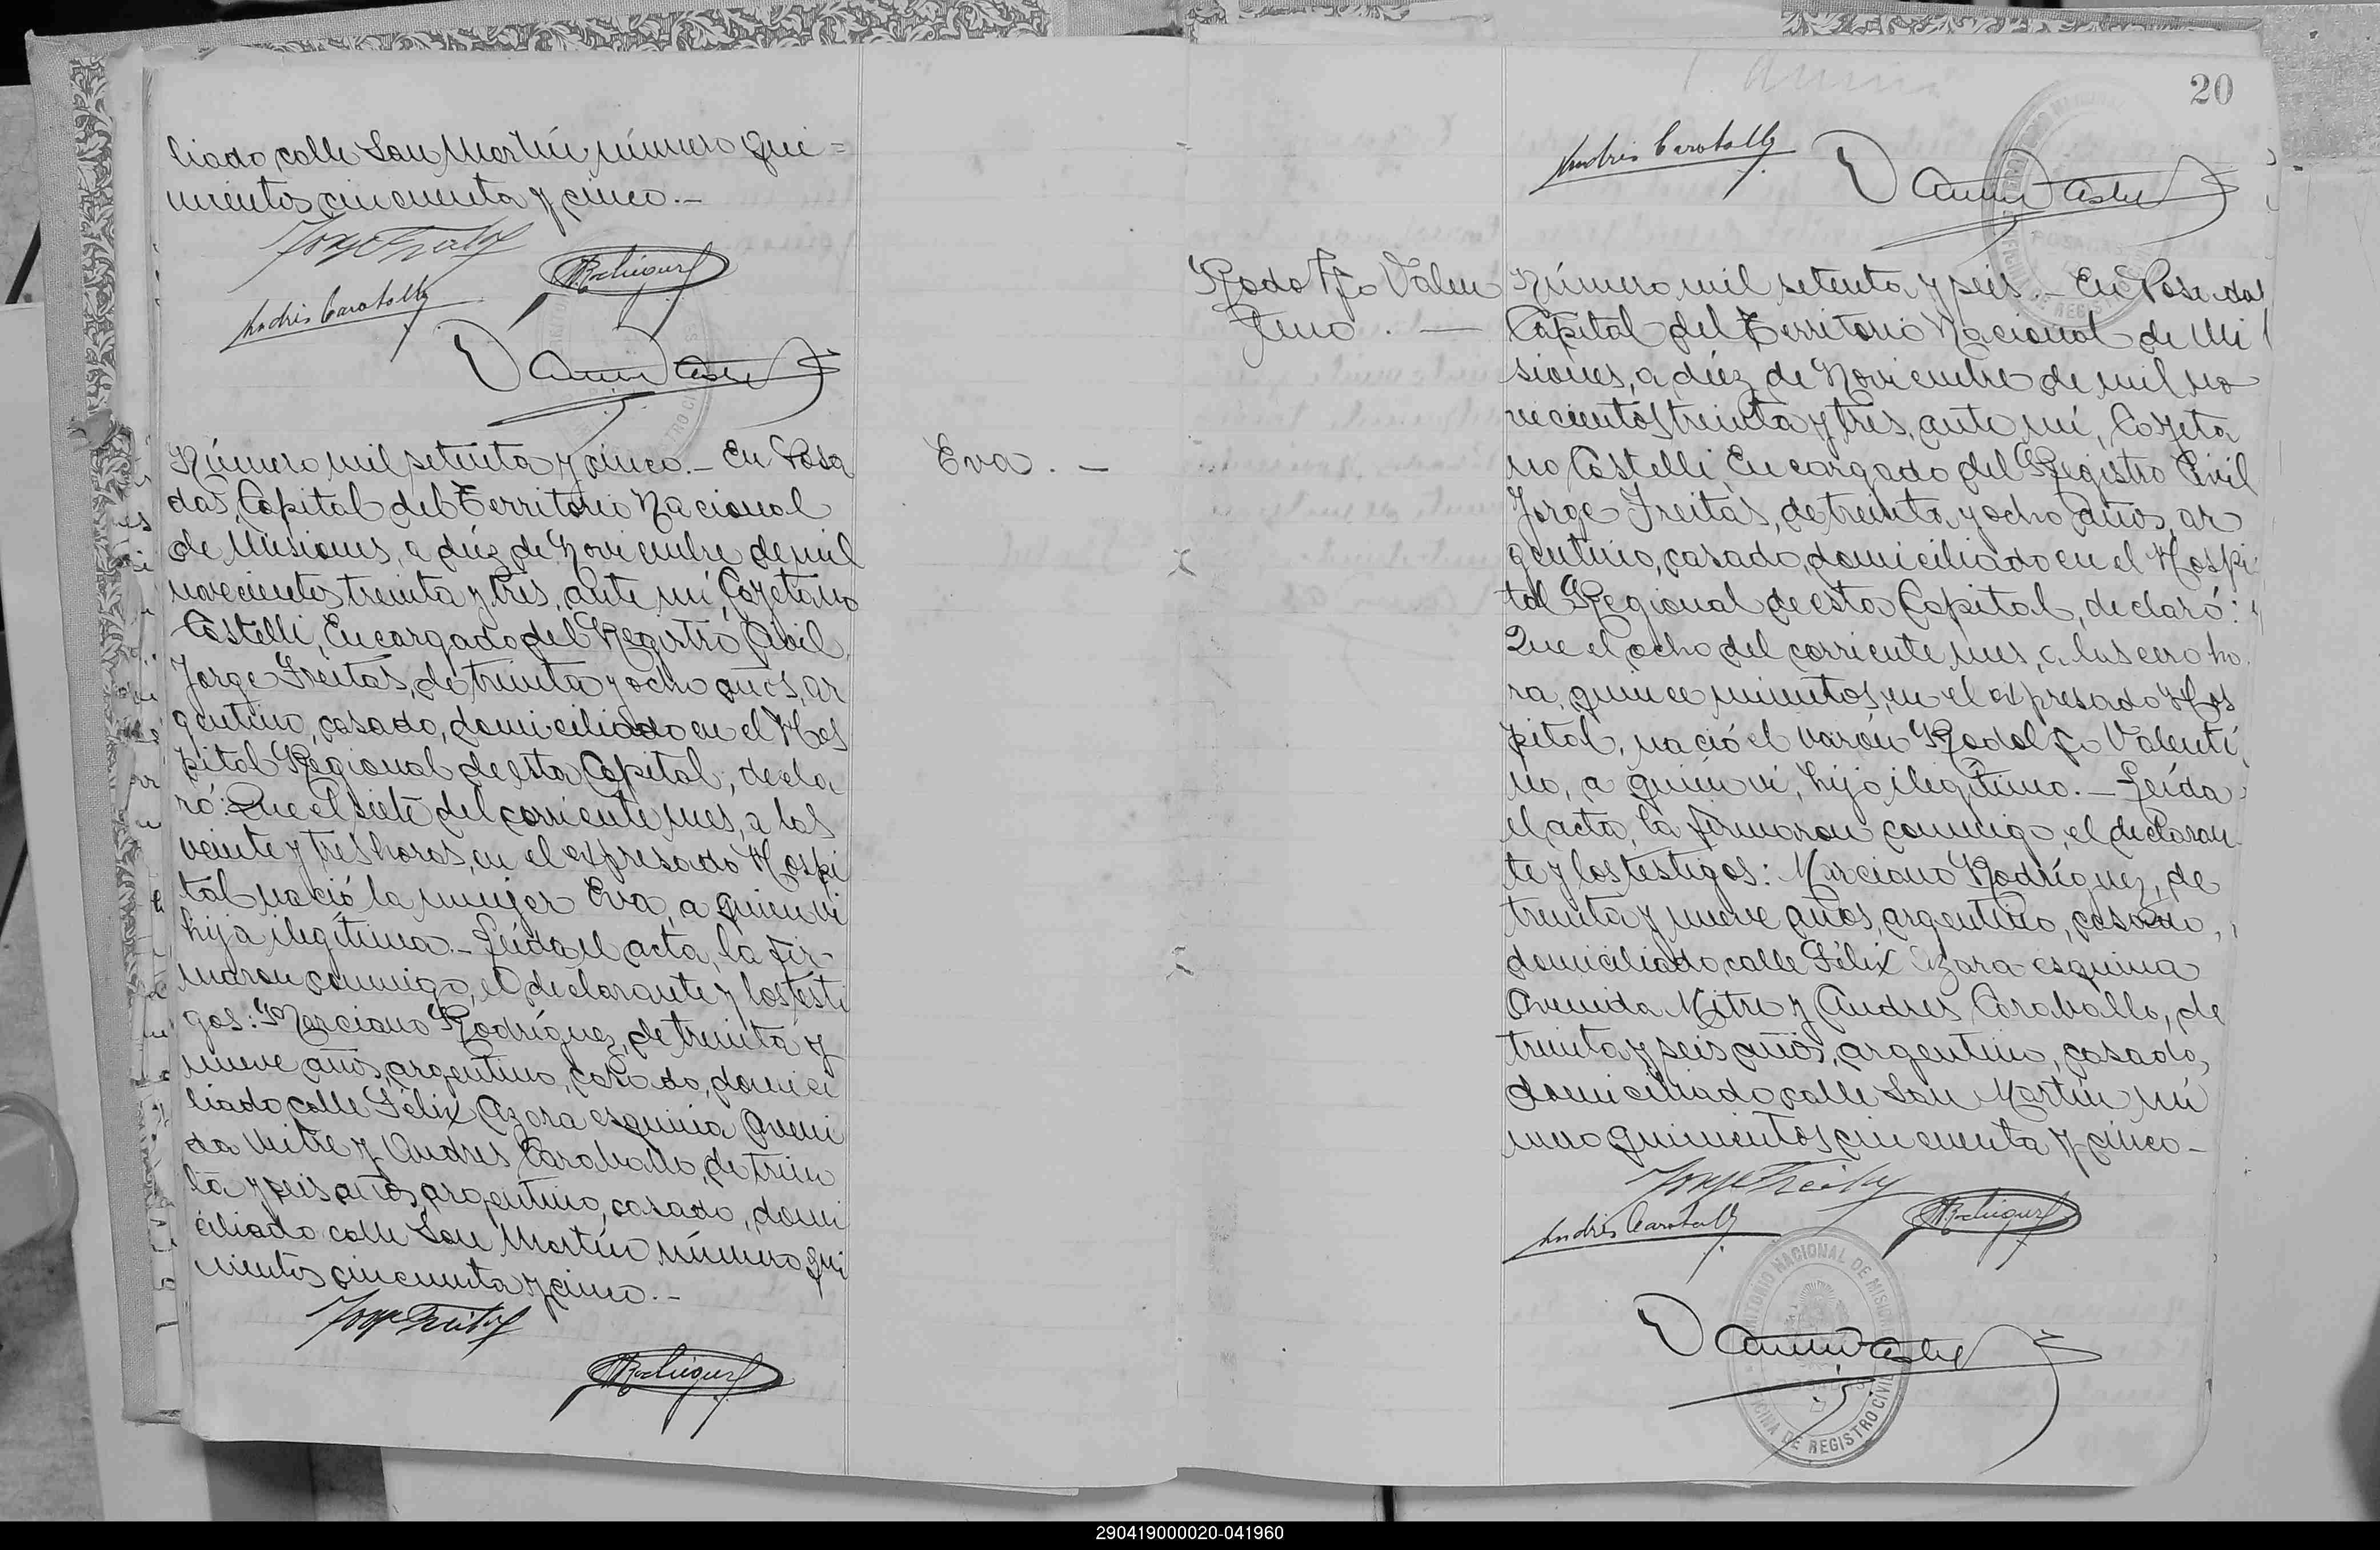 liado, calle San Martín número qui=
nientos cincuenta y cinco.—
Jorge Freitas
Rodriguez
Andrés Caraballo
Número mil setenta y cinco.— En Posa
das, Capital del Territorio Nacional
de Misiones, a diéz de Noviembre de mil
novecientos treinta y tres, ante mí, Cayetano
Castelli, Encargado del Registro Civil,
Jorge Freitas, de treinta y ocho años, ar
gentino, casado, domiciliado en el Hos
pital Regional de esta Capital, decla
ró: Que el siete del corriente mes, a las
veinte y tres horas, en el expresado Hospi
tal nació la mujer Eva, a quien vi
hija ilegítima.— Leída el acta, la fir-
maron conmigo, el declarante y los testi
gos: Marciano Rodríguez, de treinta y
nueve años, argentino, casado, domici
liado calle Félix Azara esquina Aveni
da Mitre y Andres Caraballo, de trein
ta y seis años, argentino, casado, domi
ciliado calle San Martín número qui
nientos cincuenta y cinco.—
Jorge Freitas
Rodriguez
Eva.—
20
Andrés Caraballo
Rodolfo Valen
tino.—
Número mil setenta y seis.— En Posadas
Capital del Territorio Nacional de Mi
siones, a diéz de Noviembre de mil no
vecientos treinta y tres, ante mí, Cayeta
no Castelli, Encargado del Registro Civil
Jorge Freitas, de treinta y ocho años, ar
gentino, casado, domiciliado en el Hospi
tal Regional de esta Capital, declaró:
Que el ocho del corriente mes, a las cero ho
ra, quince minutos, en el expresado Hos
pital, nació el varón Rodolfo Valenti
no, a quién vi, hijo ilegítimo.— Leída
el acta, la firmaron conmigo, el declaran
te y los testigos: Marciano Rodríguez, de
treinta y nueve años, argentino, casado,
domiciliado, calle Félix Azara esquina
Avenida Mitre y Andres Caraballo, de
treinta y seis años, argentino, casado,
domiciliado calle San Martín nú
mero quinientos cincuenta y cinco—
Jorge Freitas
Andrés Caraballo
Rodriguez
TERRITORIO NACIONAL DE MISIONES
OFICINA DE REGISTRO CIVIL
290419000020-041960